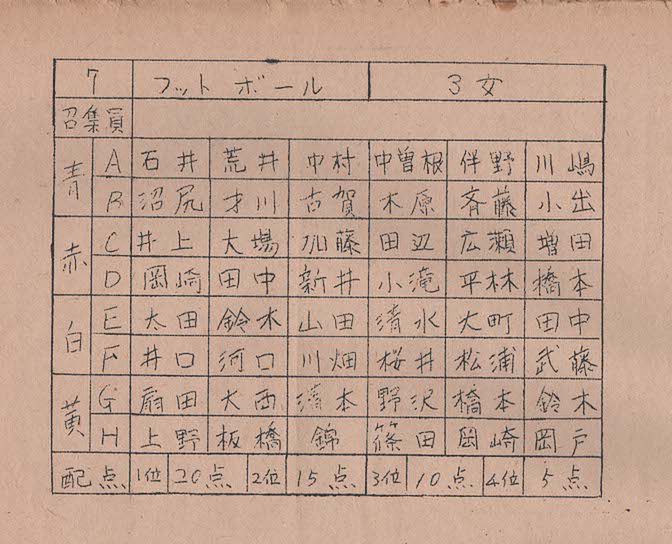 7 フットボール 3女
召集員
青 A 石井 荒井 中村 中曽根 伴野 川嶋
B 沼尻 才川 古賀 木原 斉藤 小出
赤 C 井上 大場 加藤 田辺 広瀬 増田
D 岡崎 田中 新井 小滝 平林 橋本
白 E 太田 鈴木 山田 清水 大町 田中
F 井口 河口 川畑 桜井 松浦 武藤
黄 G 扇田 大西 清本 野沢 橋本 鈴木
H 上野 板橋 錦 篠田 岡崎 岡戸
配点 1位 20点 2位 15点 3位 10点 4位 5点